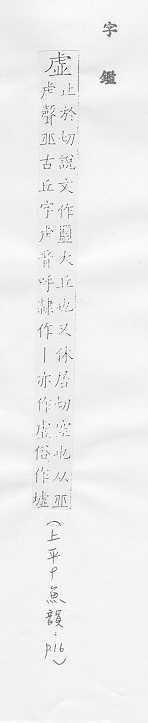 字鑑
虛
於切說文作大丘也又休居切空也从丠
虍聲丠古丘字虍音呼隸作丨亦作虛俗作墟
(上平9魚韻；p.16)